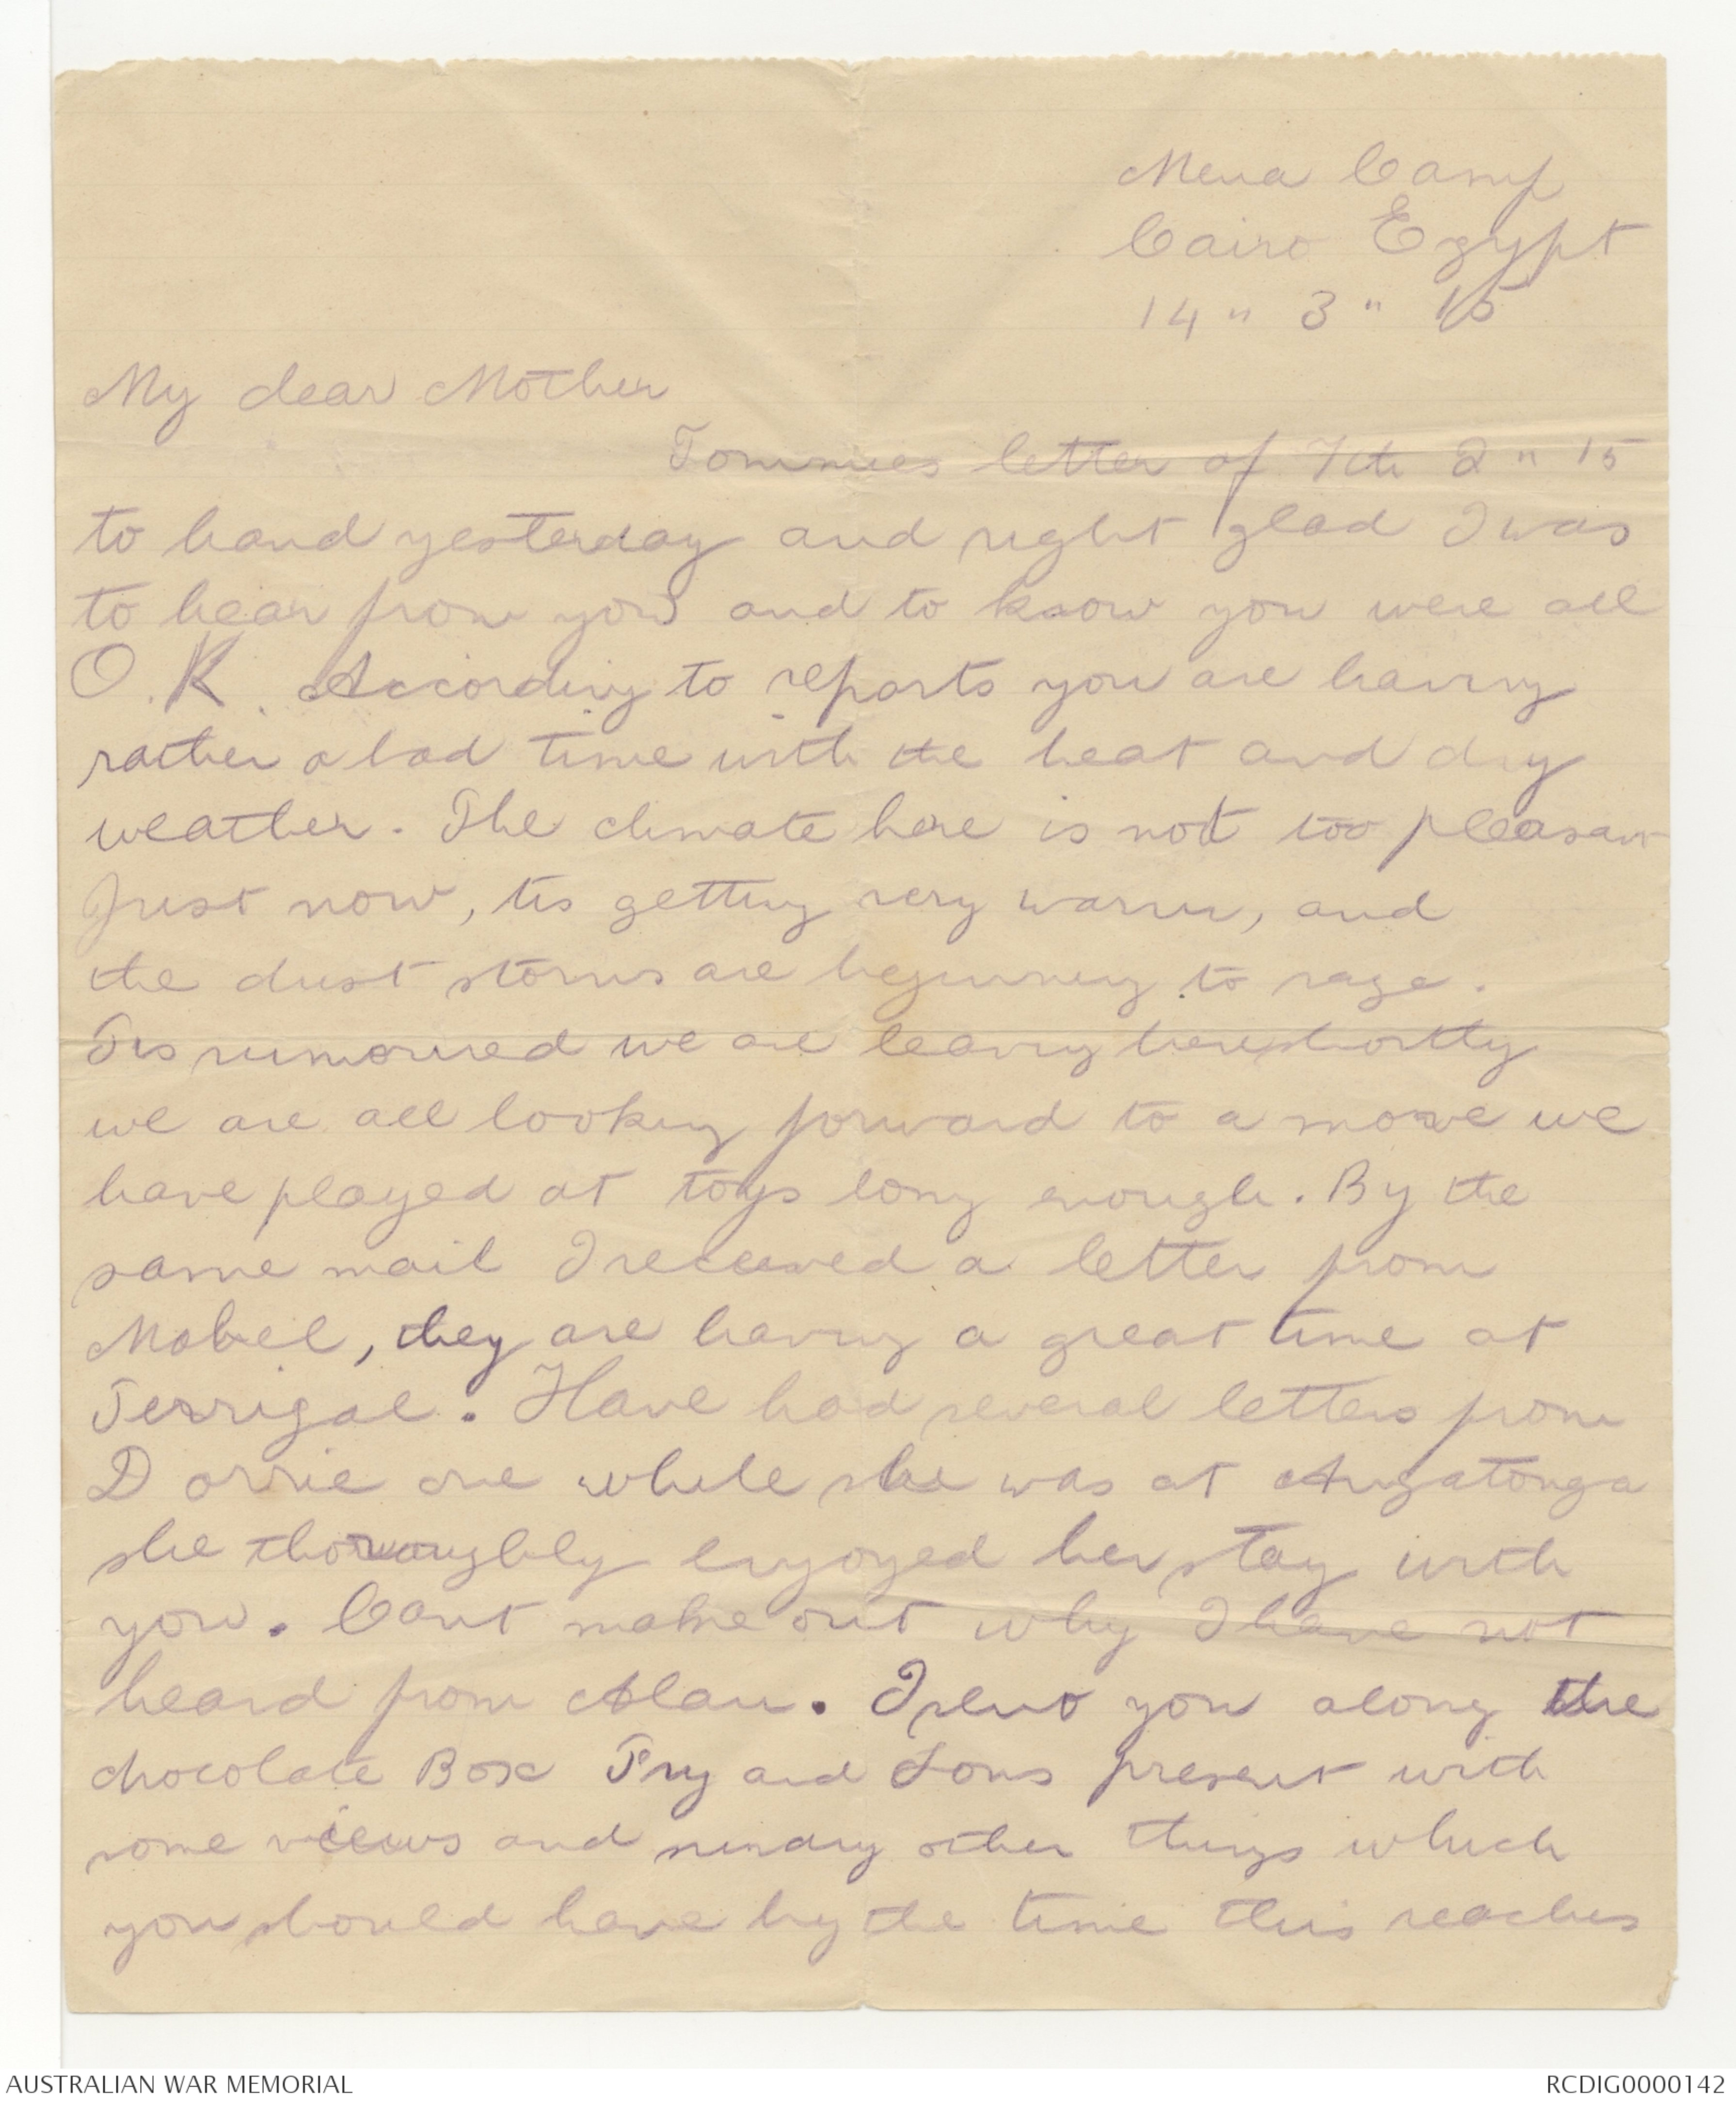 Mena Camp
Cairo Egypt
14 " 3 " 15
My dear Mother
Tommies letter of 7th 2 " 15
to hand yesterday and right glad I was
to hear from you and to know you were all
O.K. According to reports you are having
rather a bad time with the heat and dry
weather. The climate here is not too pleasant
Just now, tis getting very warm, and
the dust storms are beginning to rage.
Tis rumoured we are leaving here shortly
we are all looking forward to a move we
have played at toys long enough. By the
same mail I received a letter from
Mabel, they are having a great time at
Terrigal. Have had several letters from
Dorrie one while she was at
she thoroughly enjoyed her stay with
you. Cant make out why I have not
heard from Alan. I send you along the
chocolate Box Fry and Sons present with
some views and sundry other things which
you should have by the time this reaches
AUSTRALIAN WAR MEMORIAL
RCDIG0000142